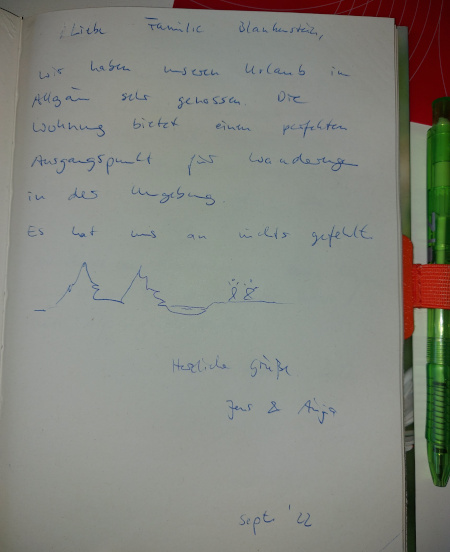 Liebe Familie Blankenstein,
wir haben unseren Urlaub im
Allgäu sehr genossen. Die
Wohnung bietet einen perfekten
Ausgangspunkt für Wanderungen
in der Umgebung.
Es hat uns an nichts gefehlt
Herzliche Grüße
Jens & Anja
Sept. '22